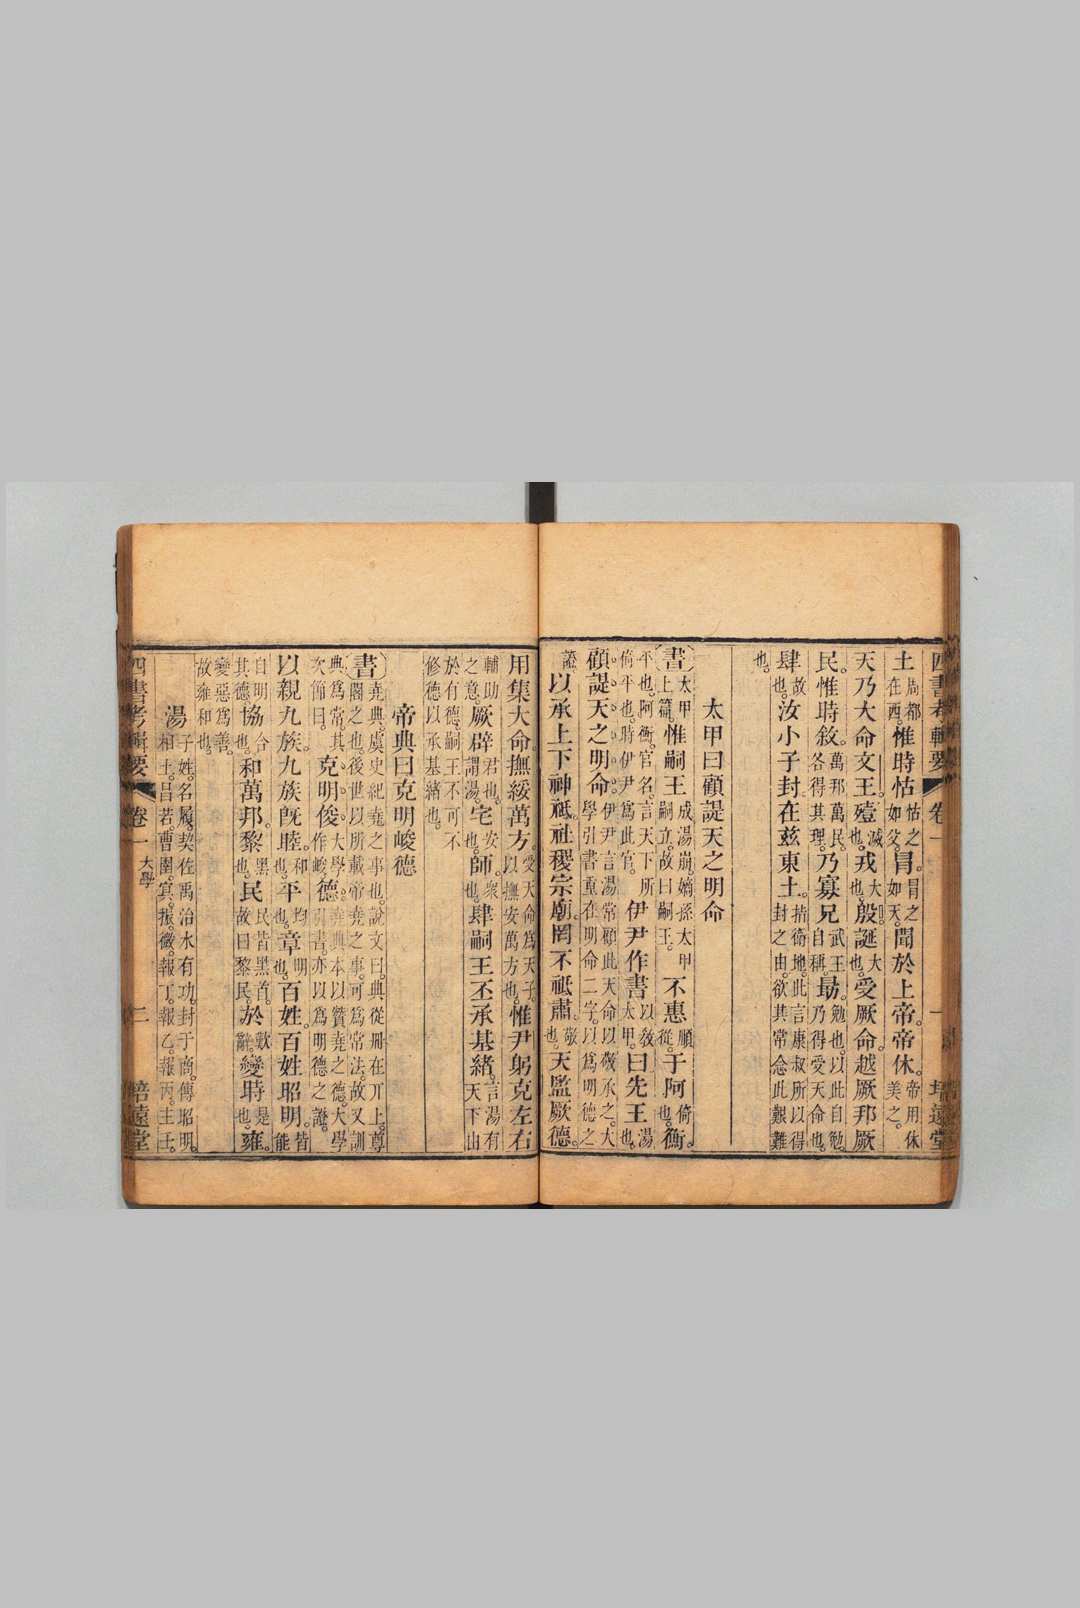 四書考輯要 卷一 一 培遠堂
土周都在西惟時怙怙之如父。冒。冒之如天。聞於上帝。帝休。帝用休美之。
天乃大命文王。殪滅也。戎大也。殷誕大也。受厥命。越厥邦厥
民。惟時敘。萬邦萬民。各得其理。乃寡兄武王自稱。勖。勉也。以此自勉。乃得受天命也。
肆故也。汝小子封在茲東土。指衛地。此言康叔所以得封之由。欲其常念此艱難
也。
太甲曰顧諟天之明命
書太甲上篇。惟嗣王成湯崩。嫡孫太甲嗣立。故曰嗣王。不惠順從。于阿倚也。衡。
平也。阿衡。官名。言天下所倚平也。時伊尹為此官。伊尹作書以教太甲。曰先王湯也。
顧諟天之明命。伊尹言湯常顧此天命以敬承之。大學引書重在明命二字。以為明德之
證。以承上下神祗。社稷宗廟。罔不祗肅。敬也。天監厥德。
用集大命。撫綏萬方。受天命為天子。以撫安萬方也。惟尹躬克左右
輔助之意。厥辟君也。謂湯。宅安也。師。眾也。肆嗣王丕承基緒。言湯有天下由
於有德。嗣王不可不修德以承基緒也。
帝典曰克明峻德
書堯典。虞史紀堯之事也。說文曰。典從冊在丌上。尊閣之也。後世以所載帝堯之事。可為常法。故又訓
典為常。其次節曰。克明俊大學作峻德。堯典本以贊堯之德。大學引書。亦以為明德之證。
以親九族。九族旣睦。和也。平均也。章明也。百姓。百姓昭明。皆能
自明其德也。協合也。和萬邦。黎黑也。民民皆黑首。故曰黎民。於歎辭。變時是也。雍。
變惡為善。故雍和也。
湯子姓。名履。契佐禹治水有功。封于商。傳昭明。相土。昌若。曹圉。冥。振。微。報丁。報乙。報丙。主壬。
四書考輯要 卷一 大學 二 培遠堂